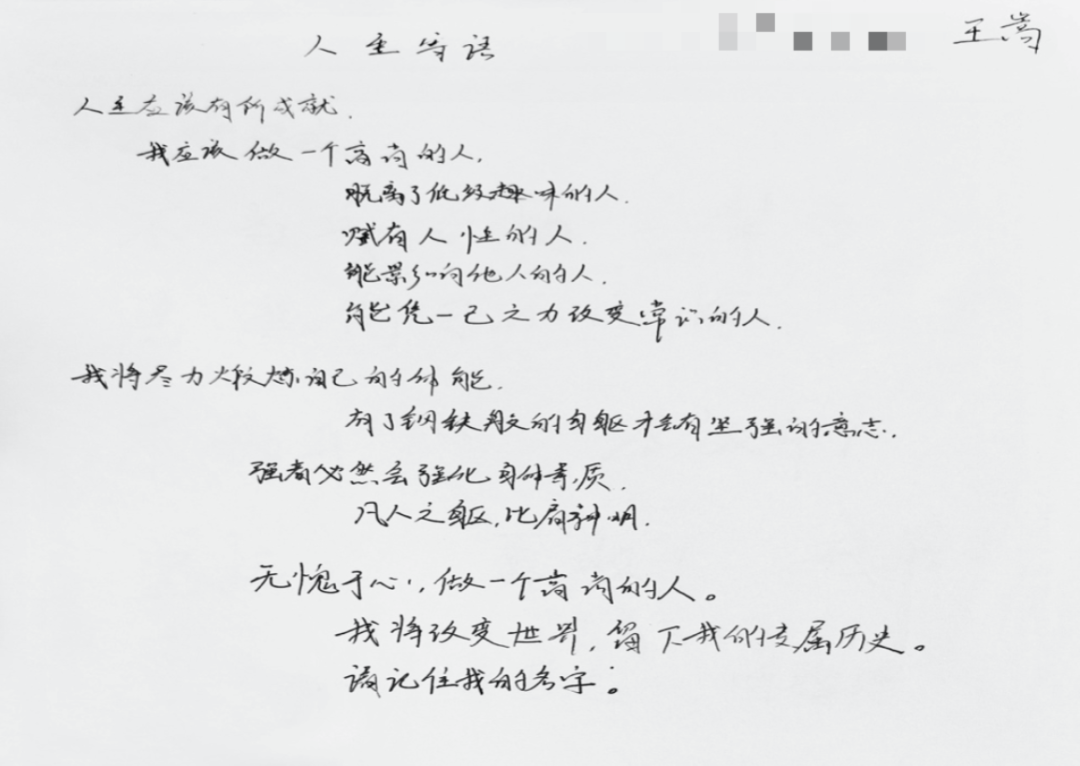 人生寄语
王嵩
人生应该有所成就.
我应该做一个高尚的人.
脱离了低级趣味的人.
赋有人性的人.
能影响向他人的人.
能凭一己之力改变常识的人.
我将尽力火锻炼自己的体能.
有了钢铁般的身躯才会有坚强的意志.
强者必然会强化身体素质.
凡人之躯,比肩神明.
无愧于心,做一个高尚的人。
我将改变世界,留下我的专属历史。
请记住我的名字。